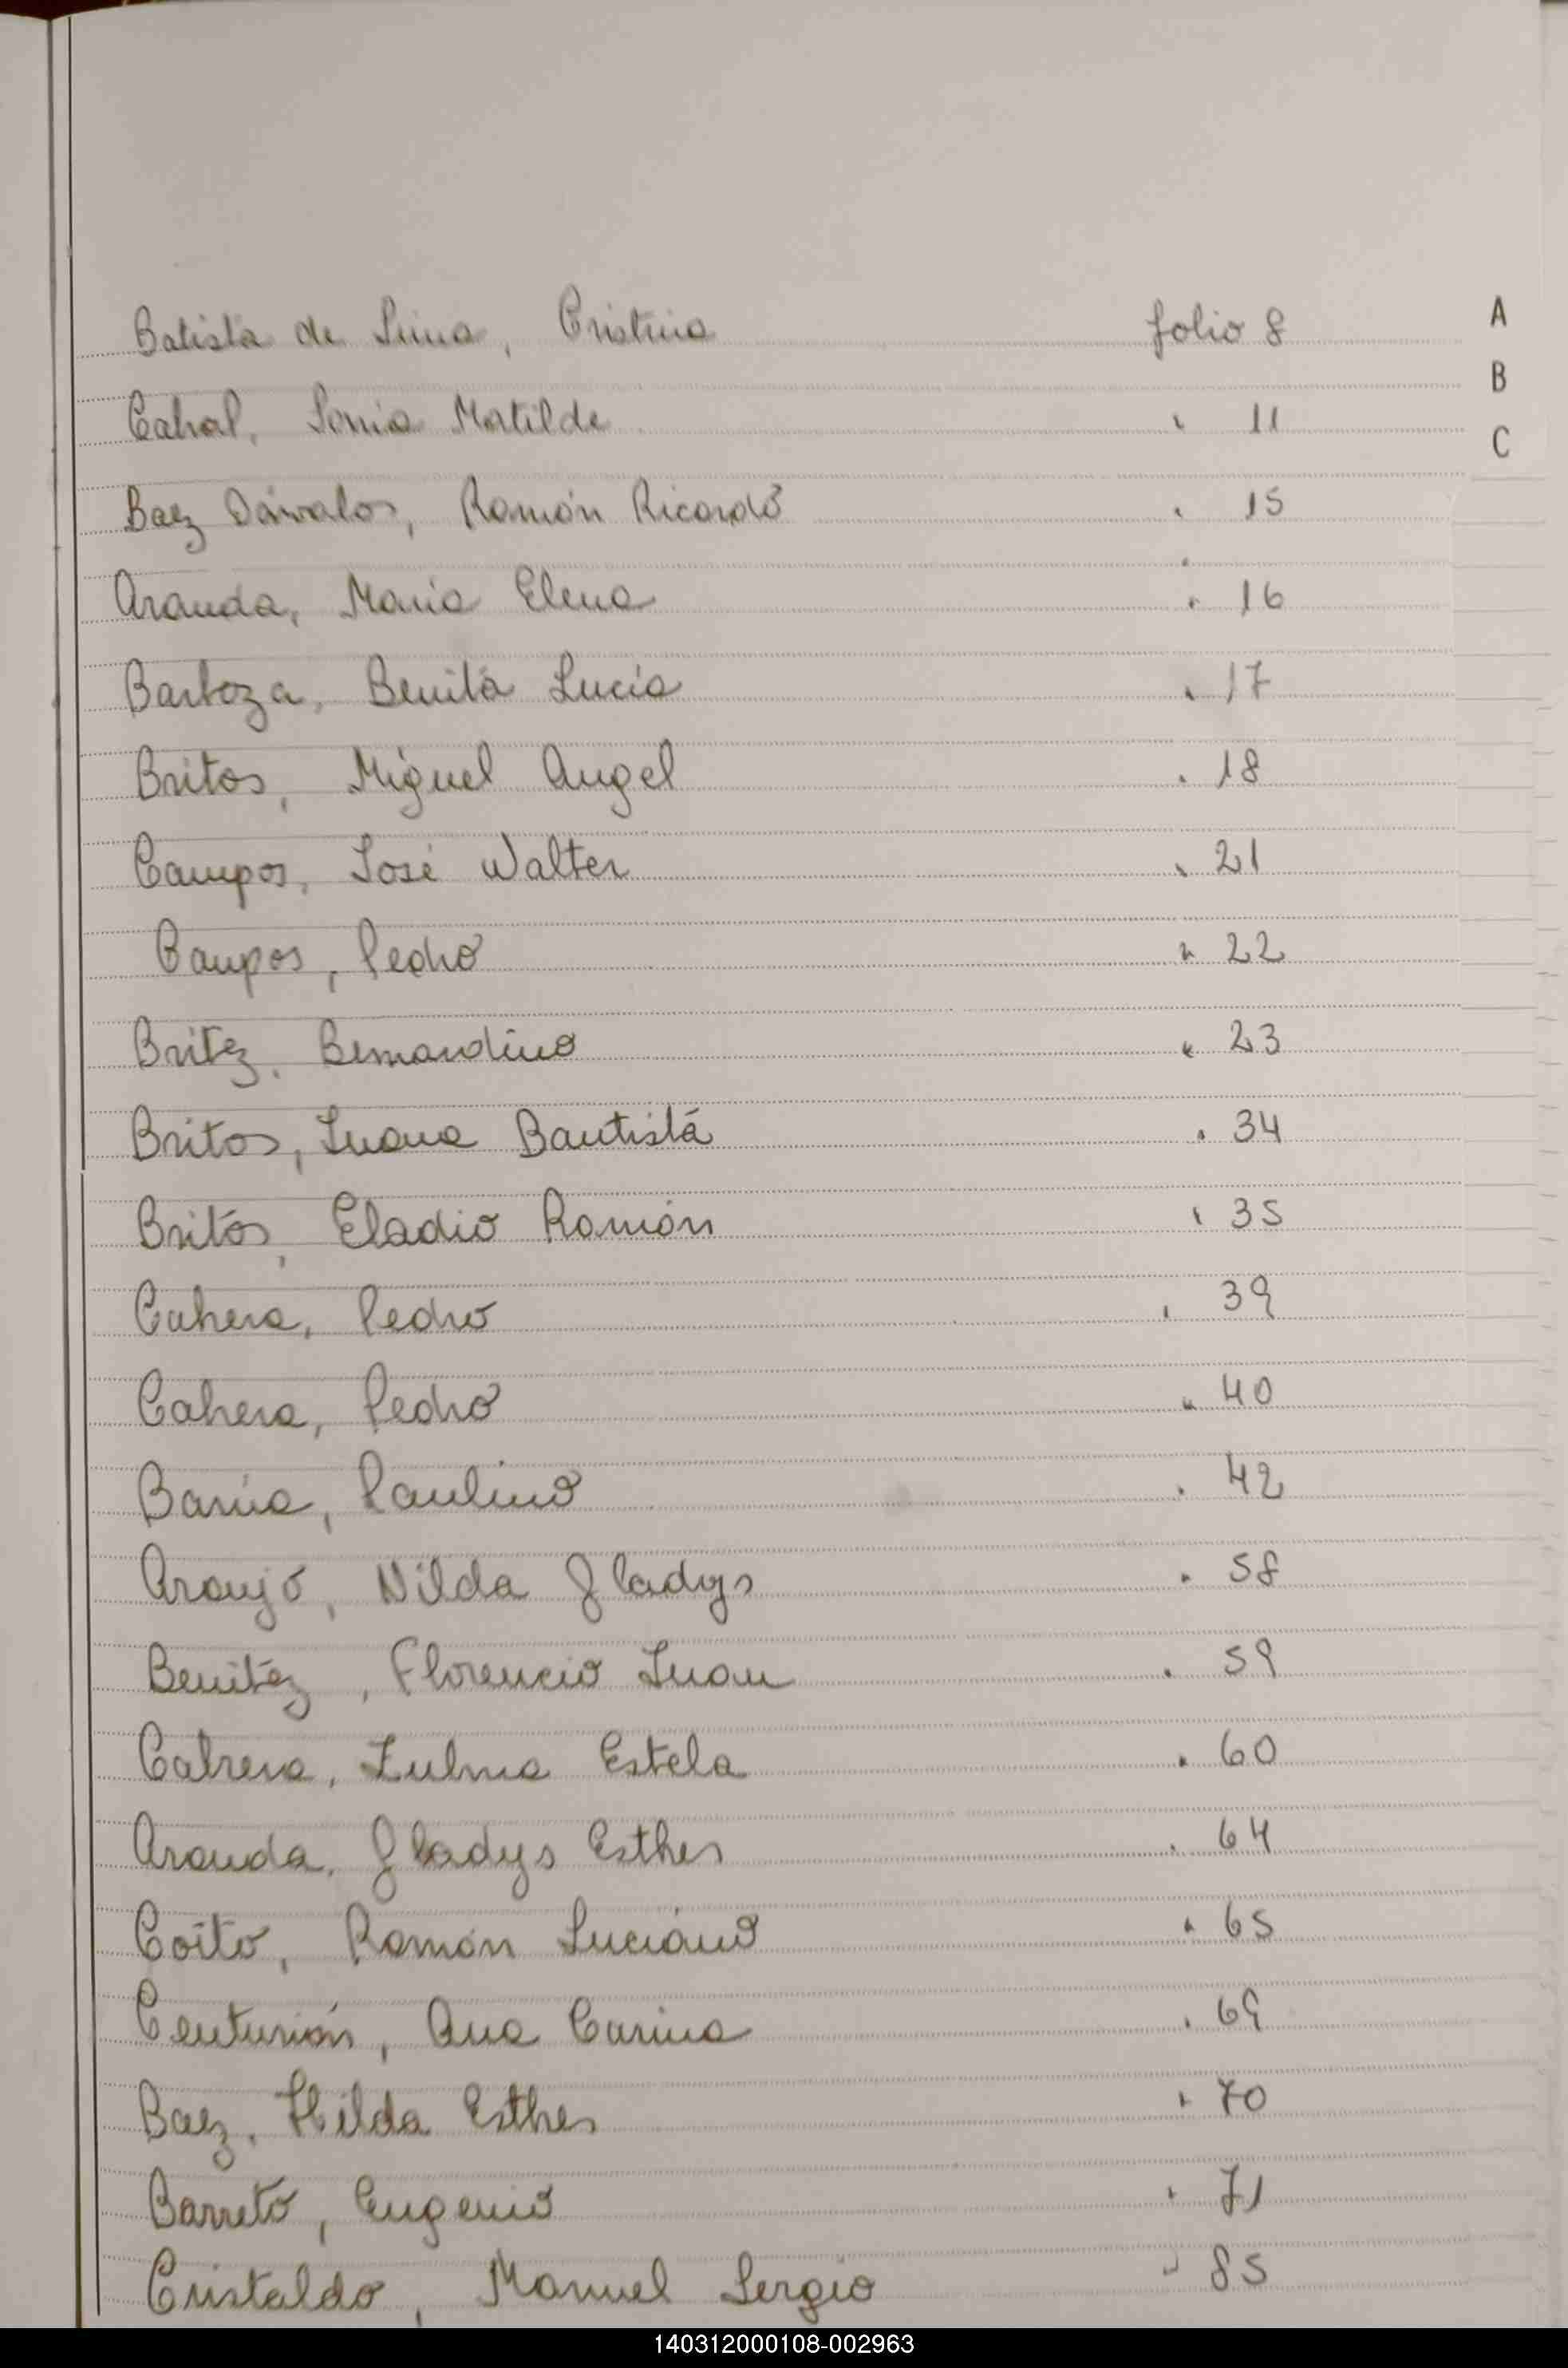 Batista de Lima, Cristina folio 8
A
B
Cabral, Sonia Matilde " 11
C
Baez Dávalos, Ramón Ricardo " 15
Aranda, María Elena " 16
Barboza, Benita Lucía " 17
Britos, Miguel Angel " 18
Campos, José Walter " 21
Campos, Pedro " 22
Britez, Bernardino " 23
Britos, Juana Bautista " 34
Britos, Eladio Ramón " 35
Cabrera, Pedro " 39
Cabrera, Pedro " 40
Barúa, Paulino " 42
Araujo, Nilda Gladys " 58
Benitez, Florencio Juan " 59
Cabrera, Zulma Estela " 60
Aranda, Gladys Esther " 64
Coito, Ramón Luciano " 65
Centurión, Ana Carina " 69
Baez, Hilda Esther " 70
Barreto, Eugenio " 71
Cristaldo, Manuel Sergio " 85
140312000108-002963